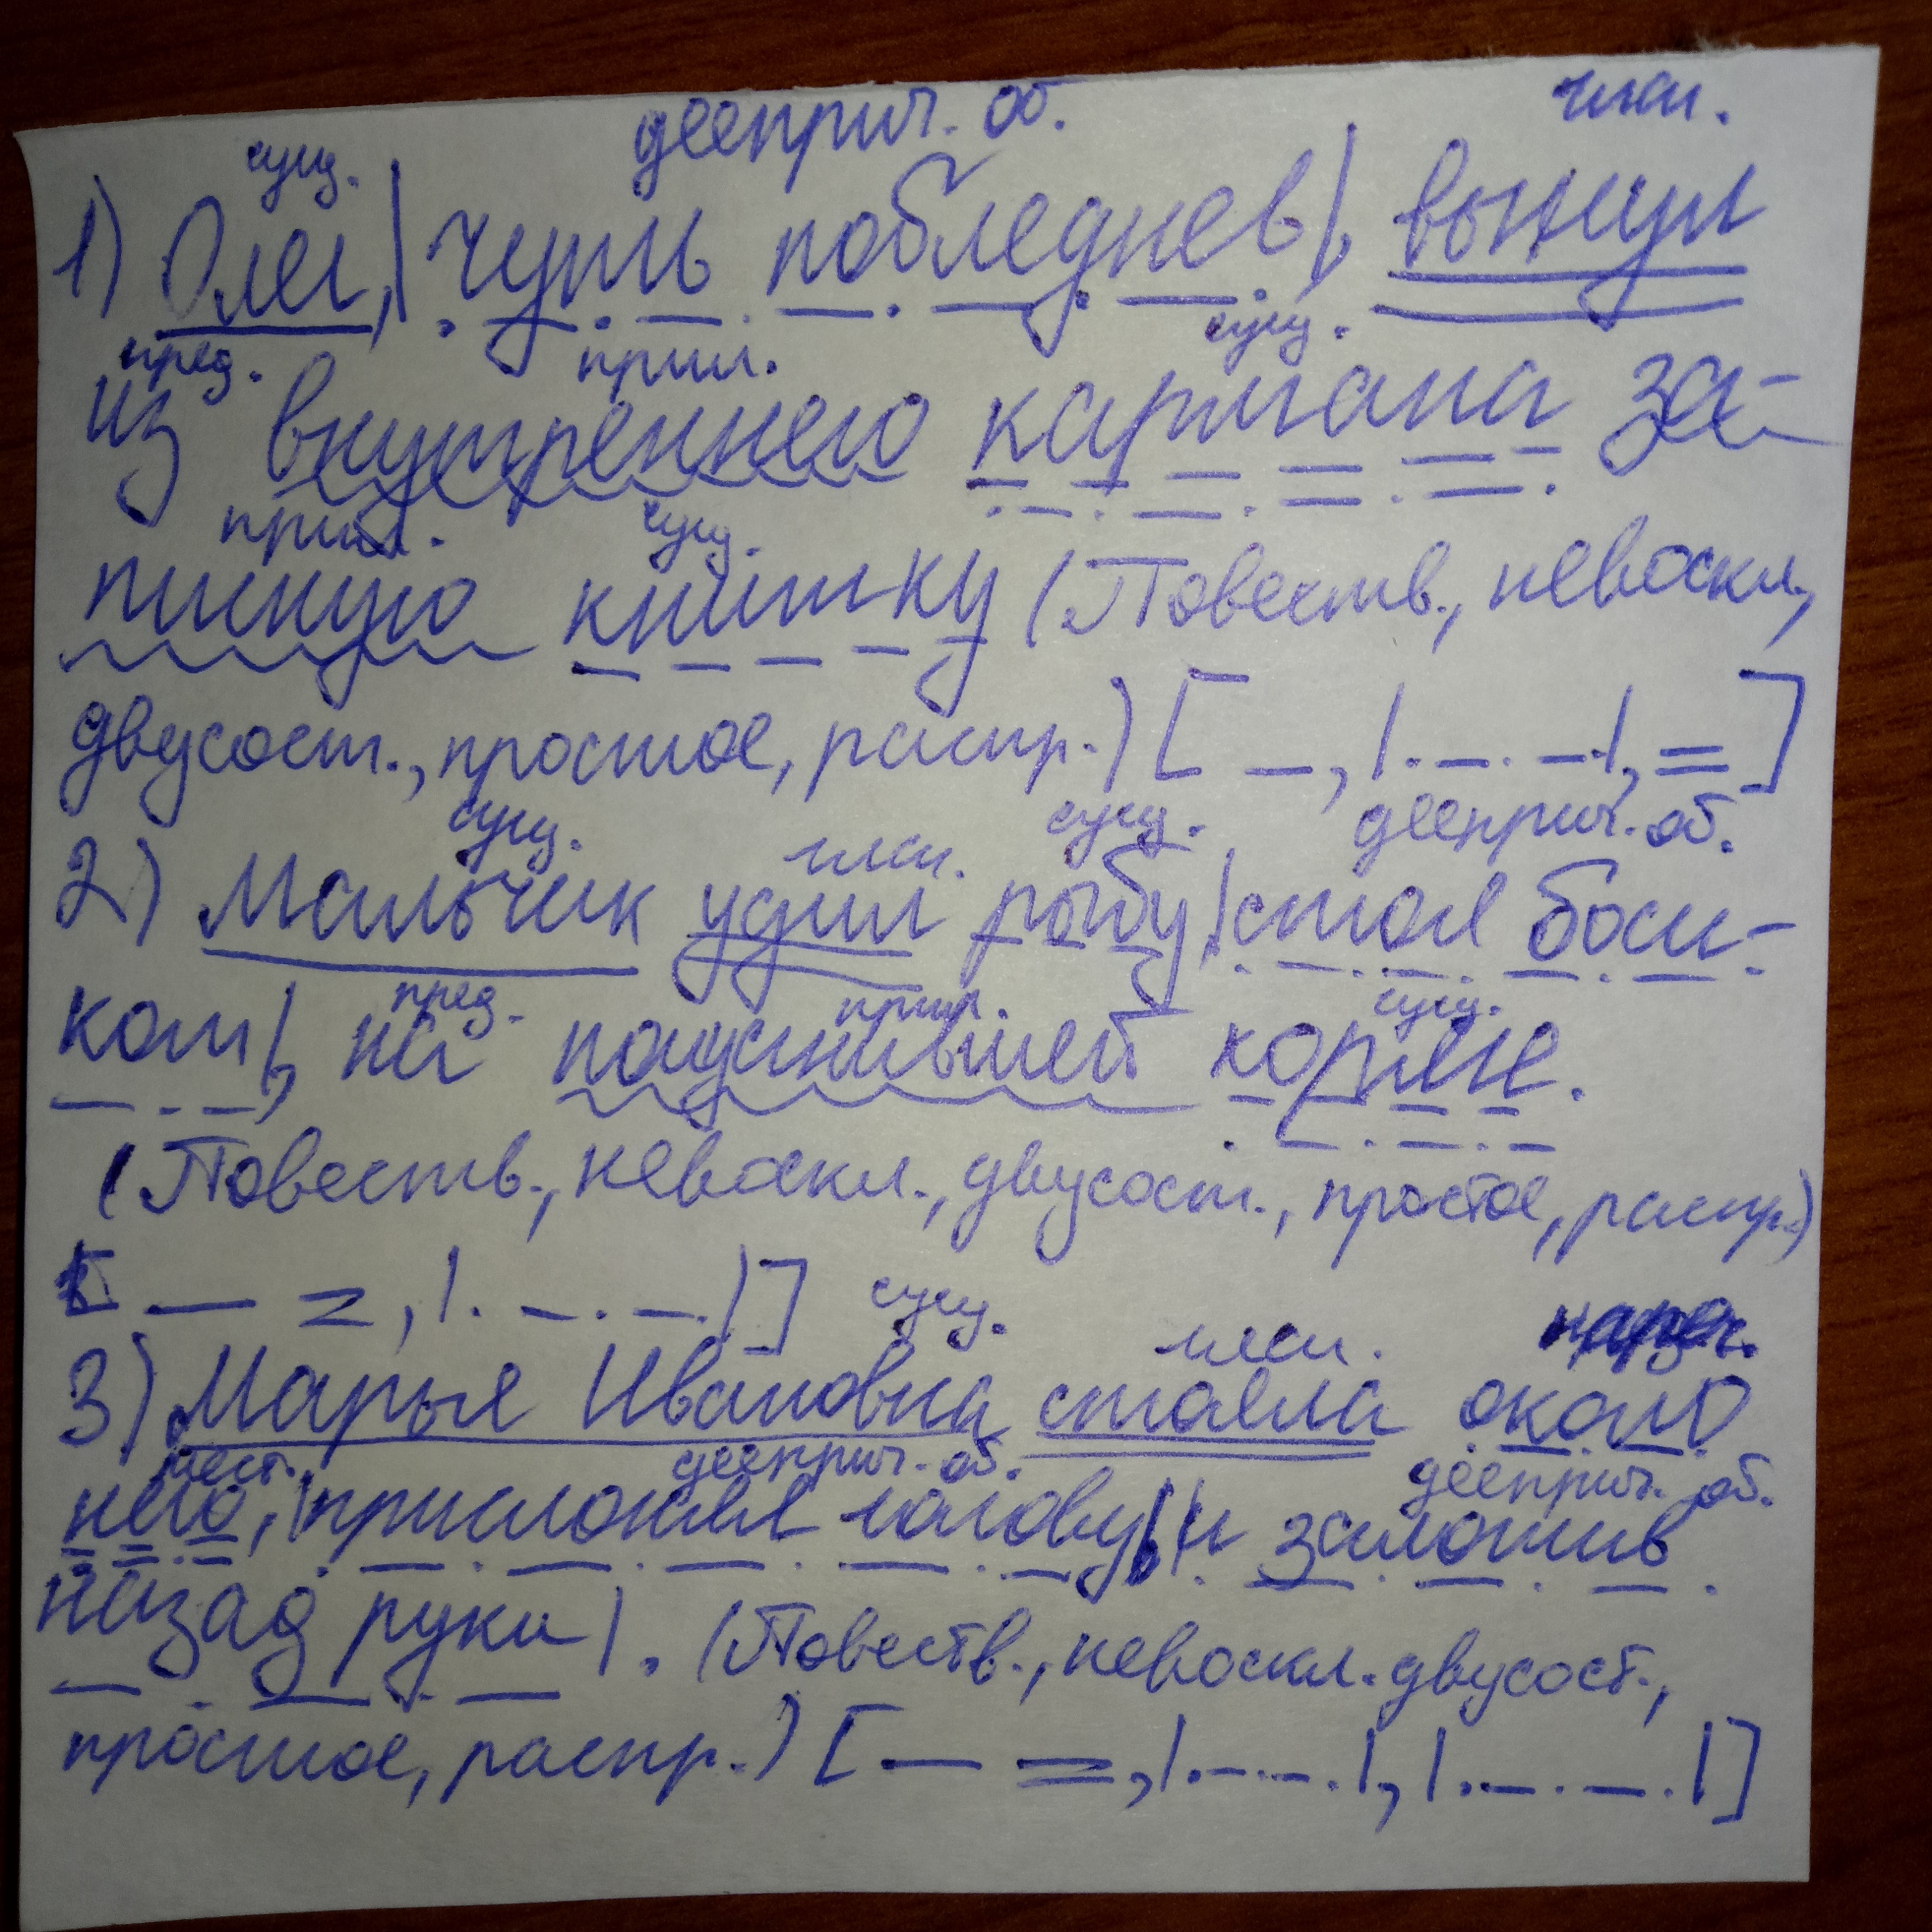 сущ. дееприч. об. глаг.
1) Олег,| чуть побледнев|, вынул
пред. прил. сущ.
из внутреннего кармана за-
прил. сущ.
писную книжку (Повеств., невоскл.,
двусост., простое, распр.) [ —, |. — . — .|, = ]
сущ. глаг. сущ. дееприч. об.
2) Мальчик удил рыбу|стоя боси-
пред. прил. сущ.
ком|, на покуснившей корме.
(Повеств., невоскл., двусост., простое, распр.)
[ — =, |. — . — .|]
сущ. глаг. нареч.
3) Марья Ивановна стояла около
мест. дееприч. об. дееприч. об.
него, |прислоняя голову|,|и заложив
назад руки|. (Повеств., невоскл. двусост.,
простое, распр.) [ — =, |. — . — .|, |. — . — .|]